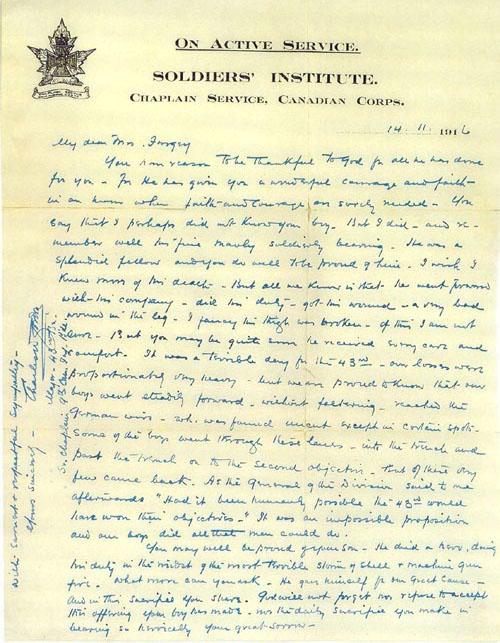 ON ACTIVE SERVICE.
SOLDIERS' INSTITUTE.
CHAPLAIN SERVICE, CANADIAN CORPS.
14. 11. 1916
My dear Mrs.
You have reason to be thankful to God for all he has done
for you - For He has given you a wonderful courage and faith -
in an hour when faith and courage are sorely needed - You
say that I perhaps did not know your boy. But I did - and re-
member well his fine manly soldierly bearing. He was a
splendid fellow and you do well to be proud of him. I wish I
knew more of his death - But all we know is that he went forward
with his company - did his duty - got his wound - a very bad
wound in the leg. I fancy his thigh was broken - of this I am not
sure. But you may be quite sure he received every care and
comfort. It was a terrible day for the 43rd - our losses were
proportionately very heavy - but we are proud to know that our
boys went steadily forward - without faltering - reached the
German wire - wh. was found uncut except in certain spots -
Some of the boys went through these lanes - into the trench and
past the trench on to the second objective - But of these very
few came back. As the General of the Division said to me
afterwards "Had it been humanly possible the 43rd would
have won their objectives." It was an impossible proposition
and our boys did all that men could do.
You may well be proud of your son - He died a hero, doing
his duty in the midst of the most terrible storm of shell + machine gun
fire. What more can you ask. He gave himself for our Great Cause -
and in this sacrifice you share. God will not forget nor refuse to accept
this offering your boy has made - nor the daily sacrifice you make in
bearing so heroically your great sorrow -
With earnest + respectful sympathy -
Yours sincerely -
Major 43rd
Sr. Chaplain 9th